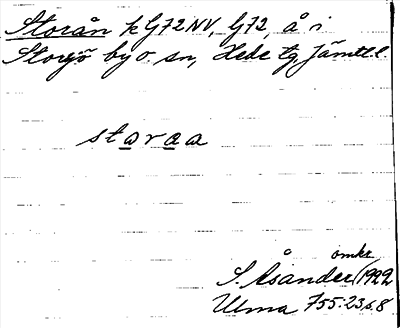 Storån k G72NV, G72, å i
Storsjö by o. sn, Hede tg Jämtl. l.
staraa
omkr
S. Åsander (1922
Ulma 755:23 s. 8